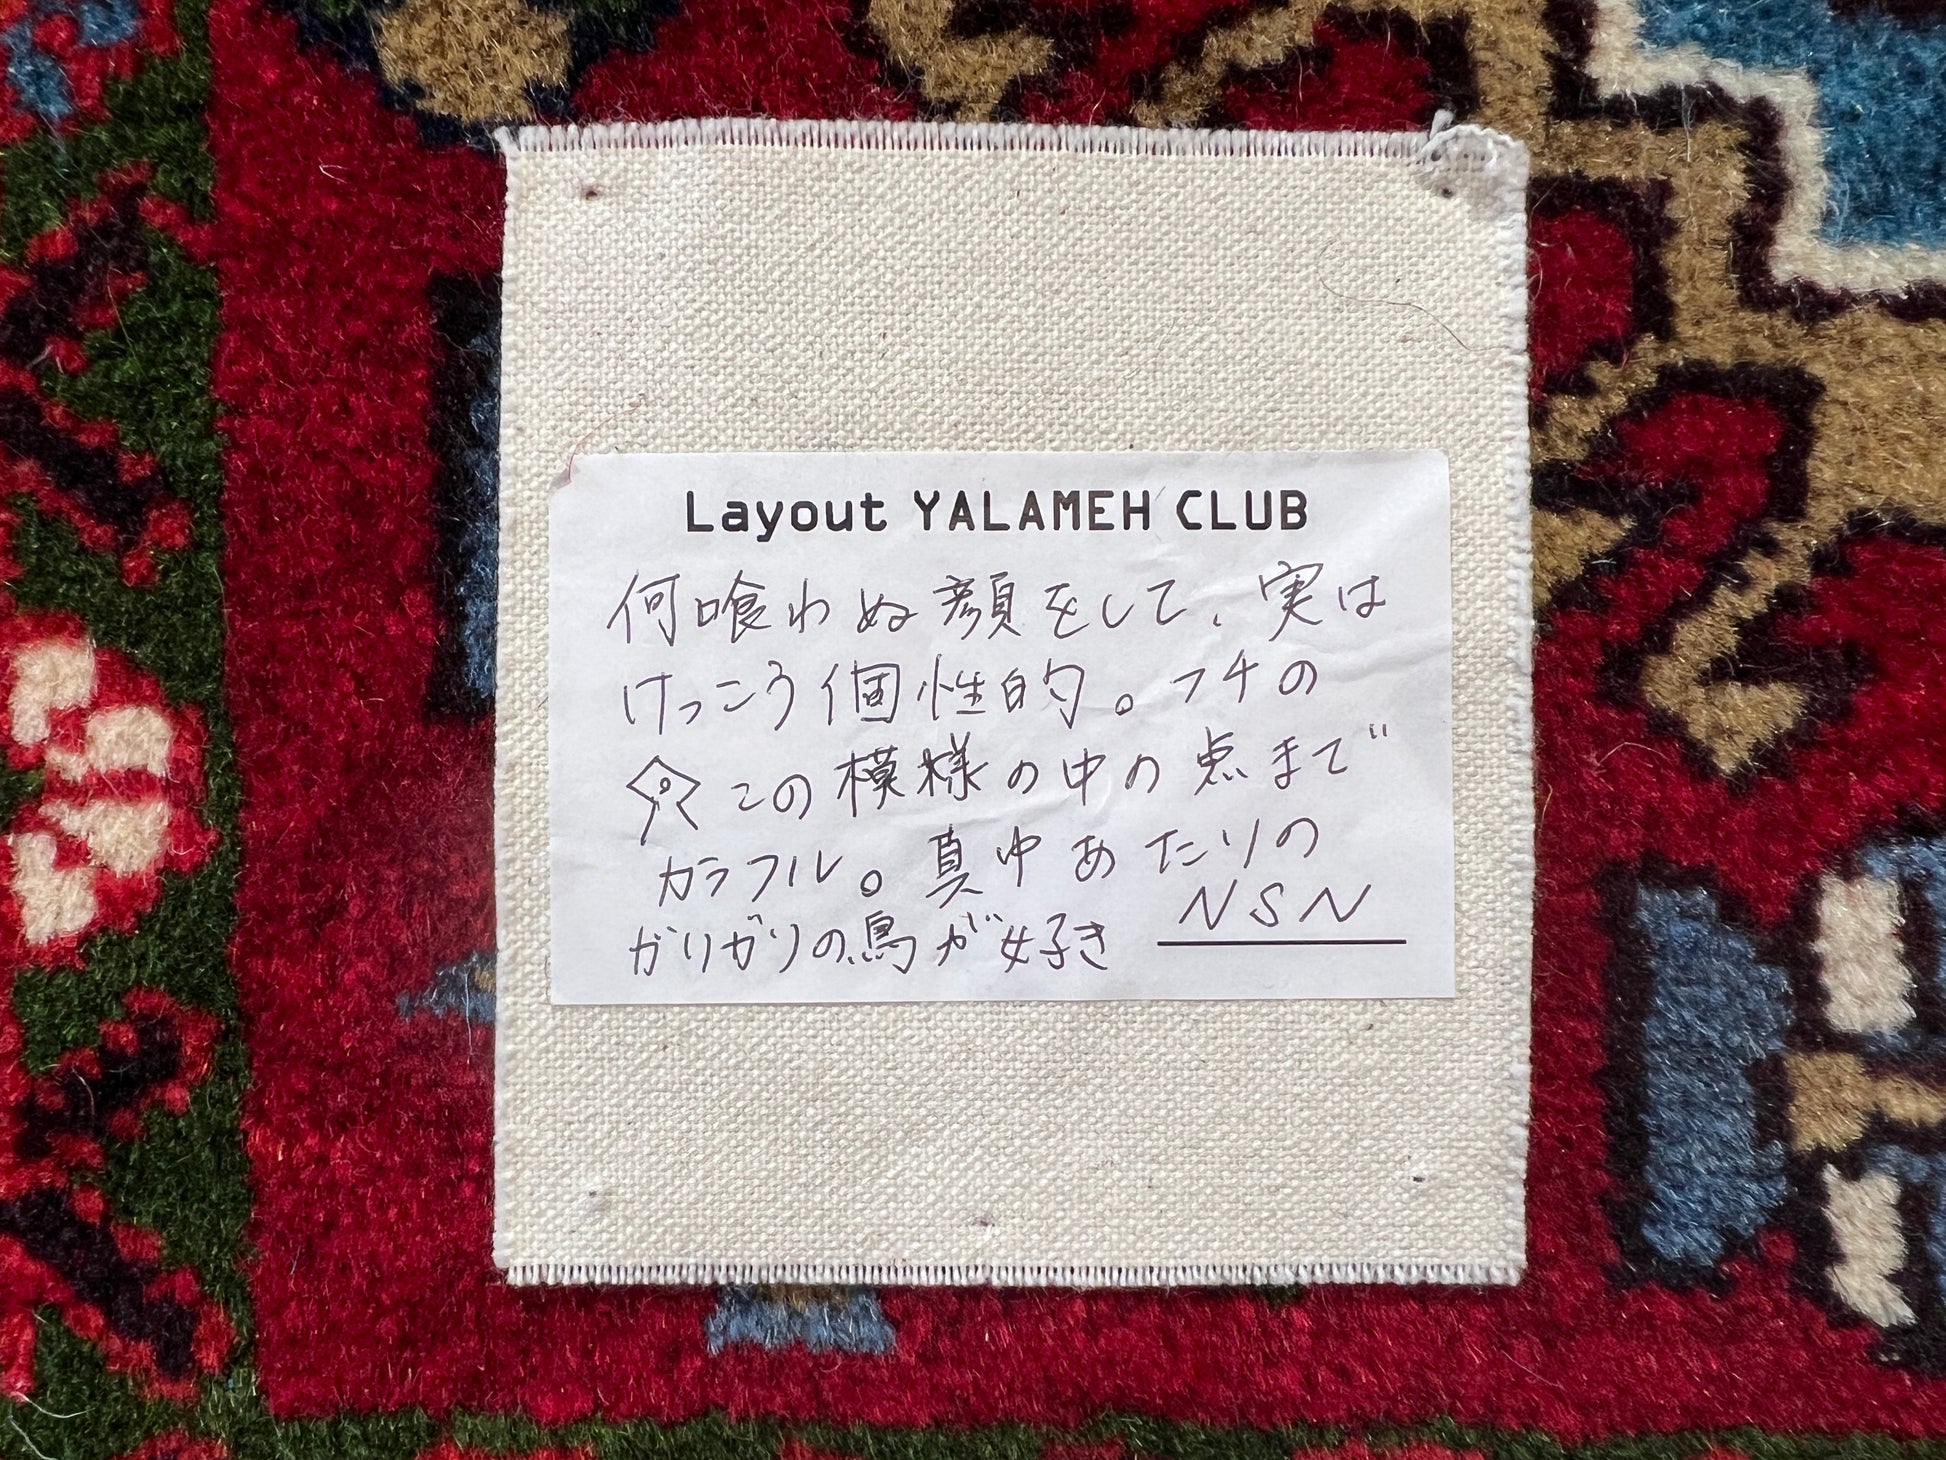 Layout YALAMEH CLUB
何喰わぬ顔をして、実は
けっこう個性的。フチの
この模様の中の点まで
カラフル。真中あたりの
ガリガリの鳥が好き
NSN